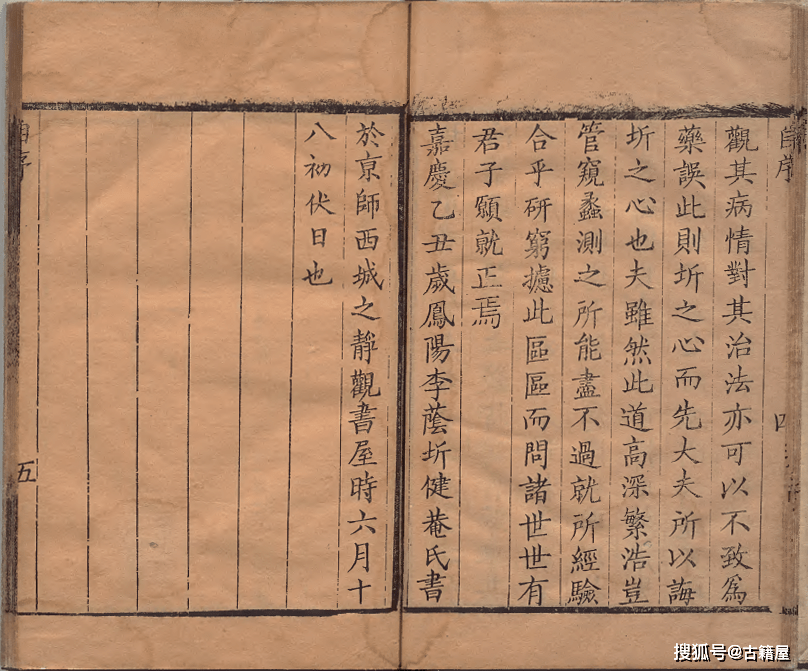 自序
四
觀其病情對其治法亦可以不致為
藥誤此則圻之心而先大夫所以誨
圻之心也夫雖然此道高深繁浩豈
管窺蠡測之所能盡不過就所經驗
合乎研窮攄此區區而問諸世世有
君子願就正焉
嘉慶乙丑歲鳳陽李蔭圻健菴氏書
於京師西城之靜觀書屋時六月十
八初伏日也
自序
五
搜狐号@古籍屋